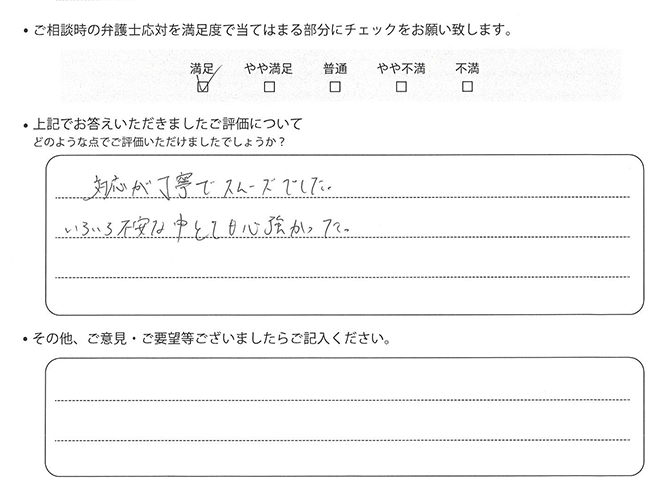 ・ご相談時の弁護士応対を満足度で当てはまる部分にチェックをお願い致します。
満足 やや満足 普通 やや不満 不満
☑ □ □ □ □
・上記でお答えいただきましたご評価について
どのような点でご評価いただけましたでしょうか？
対応が丁寧でスムーズでした。
いろいろ不安な中とても心強かった。
・その他、ご意見・ご要望等ございましたらご記入ください。